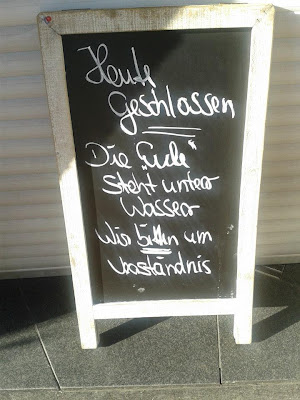 Heute
Geschlossen
Die „Ecke"
steht unter
Wasser
Wir bitten um
Verständnis